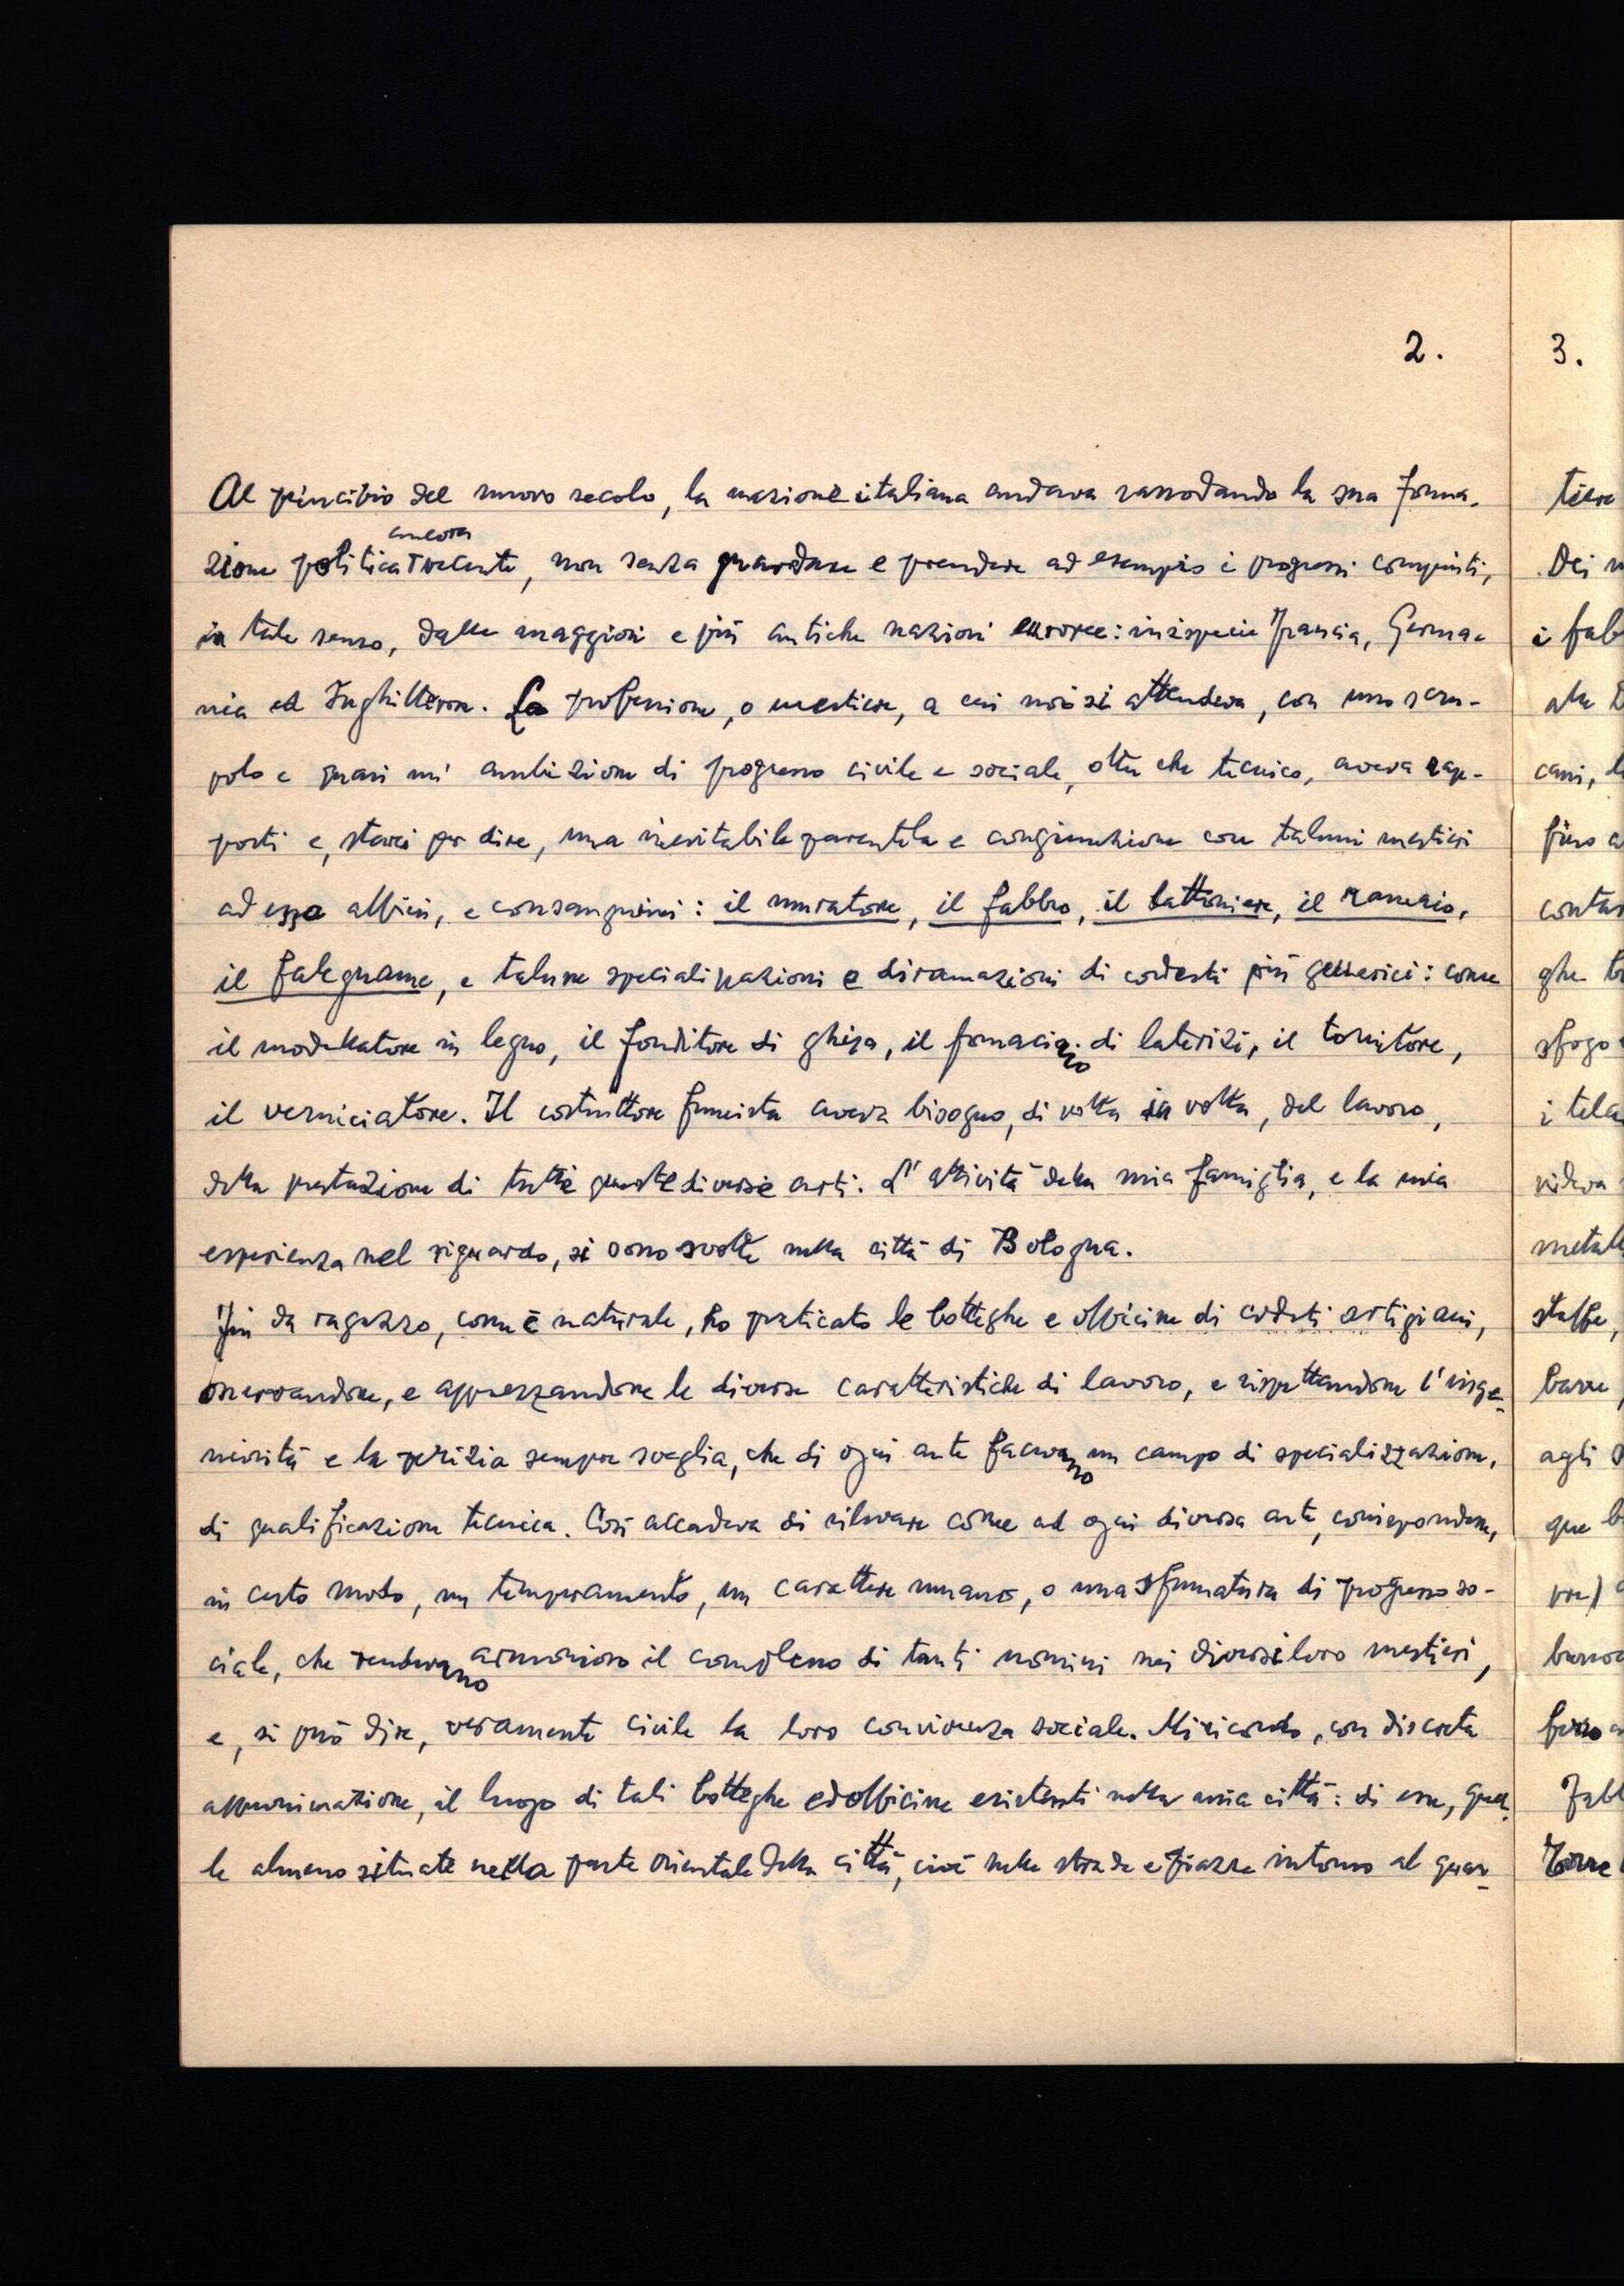 2.
Al principio del nuovo secolo, la nazione italiana andava rassodando la sua forma-
ancora
zione politica recente, non senza guardare e prendere ad esempio i progressi compiuti,
in tale senso, dalle maggiori e più antiche nazioni europee: inispecie Francia, Germa-
nia ed Inghilterra. La professione, o mestiere, a cui noi si attendeva, con uno scru-
polo e quasi un' ambizione di progresso civile e sociale, oltre che tecnico, aveva rap-
porti e, starei per dire, una inevitabile parentela e congiunzione con taluni mestieri
ad essa affini, e consanguinei: il muratore, il fabbro, il lattoniere, il ramaio,
il falegname, e talune specializzazioni e diramazioni di codesti più generici: come
il modellatore in legno, il fonditore di ghisa, il fornaciaio di laterizi, il tornitore,
il verniciatore. Il costruttore fumista aveva bisogno, di volta in volta, del lavoro,
della prestazione di tutte queste diverse arti. L'attività della mia famiglia, e la mia
esperienza nel riguardo, si sono svolte nella città di Bologna.
Fin da ragazzo, com'è naturale, ho praticato le botteghe e officine di codesti artigiani,
osservandone, e apprezzandone le diverse caratteristiche di lavoro, e rispettandone l'inge-
niosità e la perizia sempre sveglia, che di ogni arte facevano un campo di specializzazione,
di qualificazione tecnica. Così accadeva di rilevare come ad ogni diversa arte, corrispondesse,
in certo modo, un temperamento, un carattere umano, o una sfumatura di progresso so-
ciale, che rendevano armonioso il complesso di tanti uomini nei diversi loro mestieri,
e, si può dire, veramente civile la loro convivenza sociale. Mi ricordo, con discreta
approssimazione, il luogo di tali botteghe ed officine esistenti nella mia città: di esse, quel-
le almeno situate nella parte orientale della città, cioè nelle strade e piazze intorno al quar-
3.
Dei
i fab
cani,
fino
sfogo
i tela
metall
staffe,
barre,
agli
que
ferro
Fabb
Torre